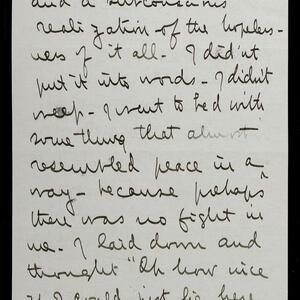 and a subconscious
realization of the hopeless-
ness of it all - I did'nt
put it into words - I didn't
weep - I went to bed with
something that almost
resembled peace in a
way - because perhaps"
there was no fight in
me - I laid down and
thought "Oh how nice
if I could just lie here